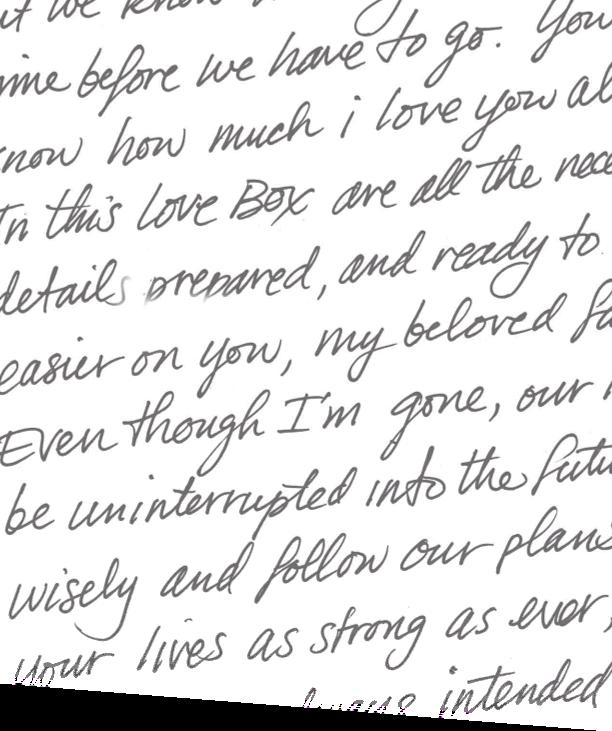 we know
before we have to go. You
how much i love you
In this love Box are all the
details prepared, and ready to
easier on you, my beloved
Even though I'm gone, our
be uninterrupted into the
wisely and follow our plans
your lives as strong as ever,
always intended